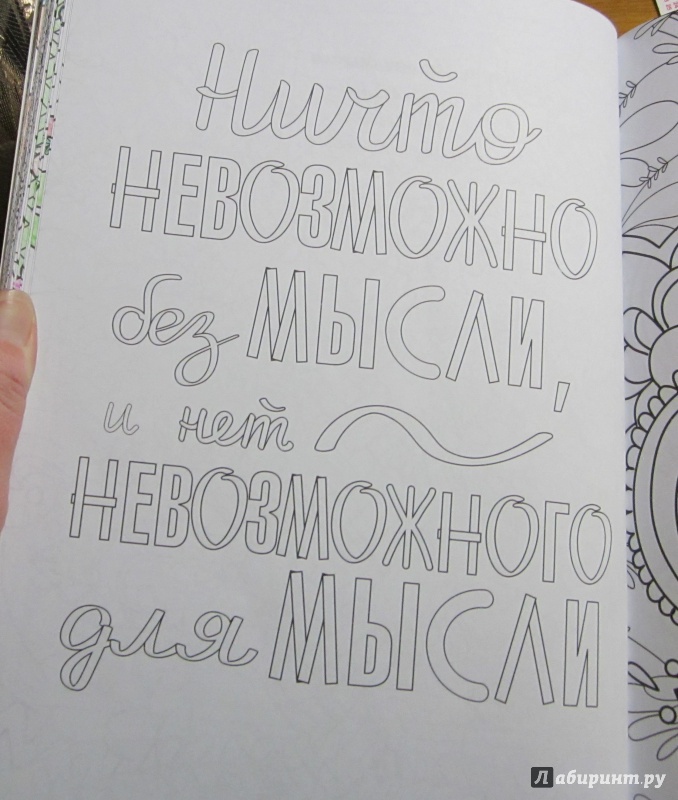 Ничто
НЕВОЗМОЖНО
без МЫСЛИ,
и нет
НЕВОЗМОЖНОГО
для МЫСЛИ
Лабиринт.ру